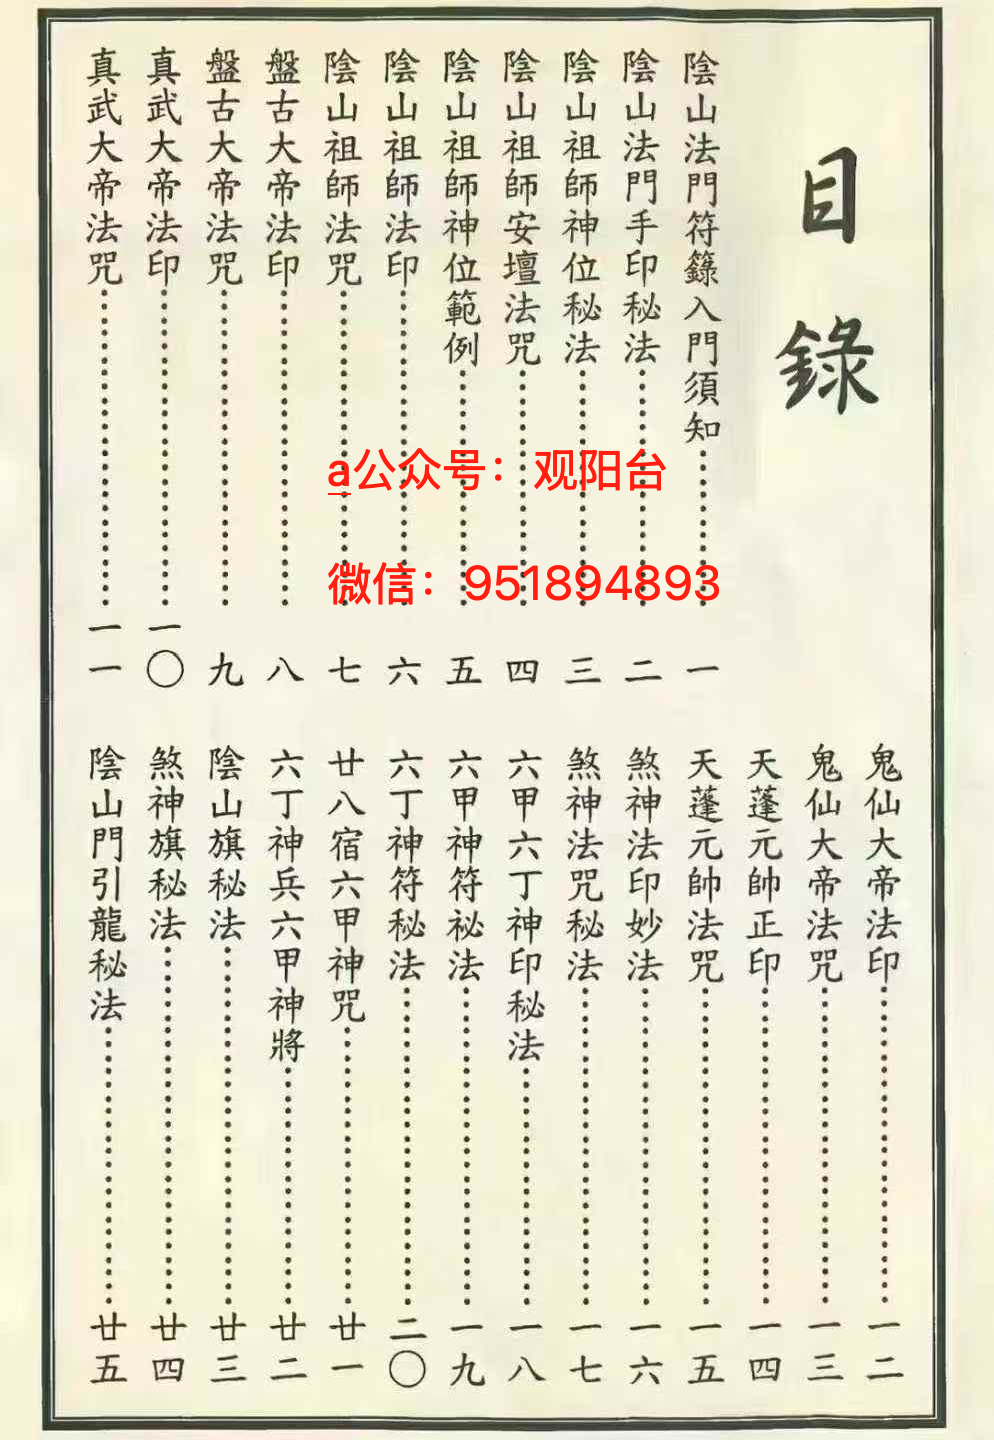 目錄
陰山法門符籙入門須知……一
陰山法門手印秘法……二
陰山祖師神位秘法……三
陰山祖師安壇法咒……四
陰山祖師神位範例……五
陰山祖師法印……六
陰山祖師法咒……七
盤古大帝法印……八
盤古大帝法咒……九
真武大帝法印……一〇
真武大帝法咒……一一
鬼仙大帝法印……一二
鬼仙大帝法咒……一三
天蓬元帥正印……一四
天蓬元帥法咒……一五
煞神法印妙法……一六
煞神法咒秘法……一七
六甲六丁神印秘法……一八
六甲神符祕法……一九
六丁神符秘法……二〇
廿八宿六甲神咒……廿一
六丁神兵六甲神將……廿二
陰山旗秘法……廿三
煞神旗秘法……廿四
陰山門引龍秘法……廿五
a公众号：观阳台
微信：951894893